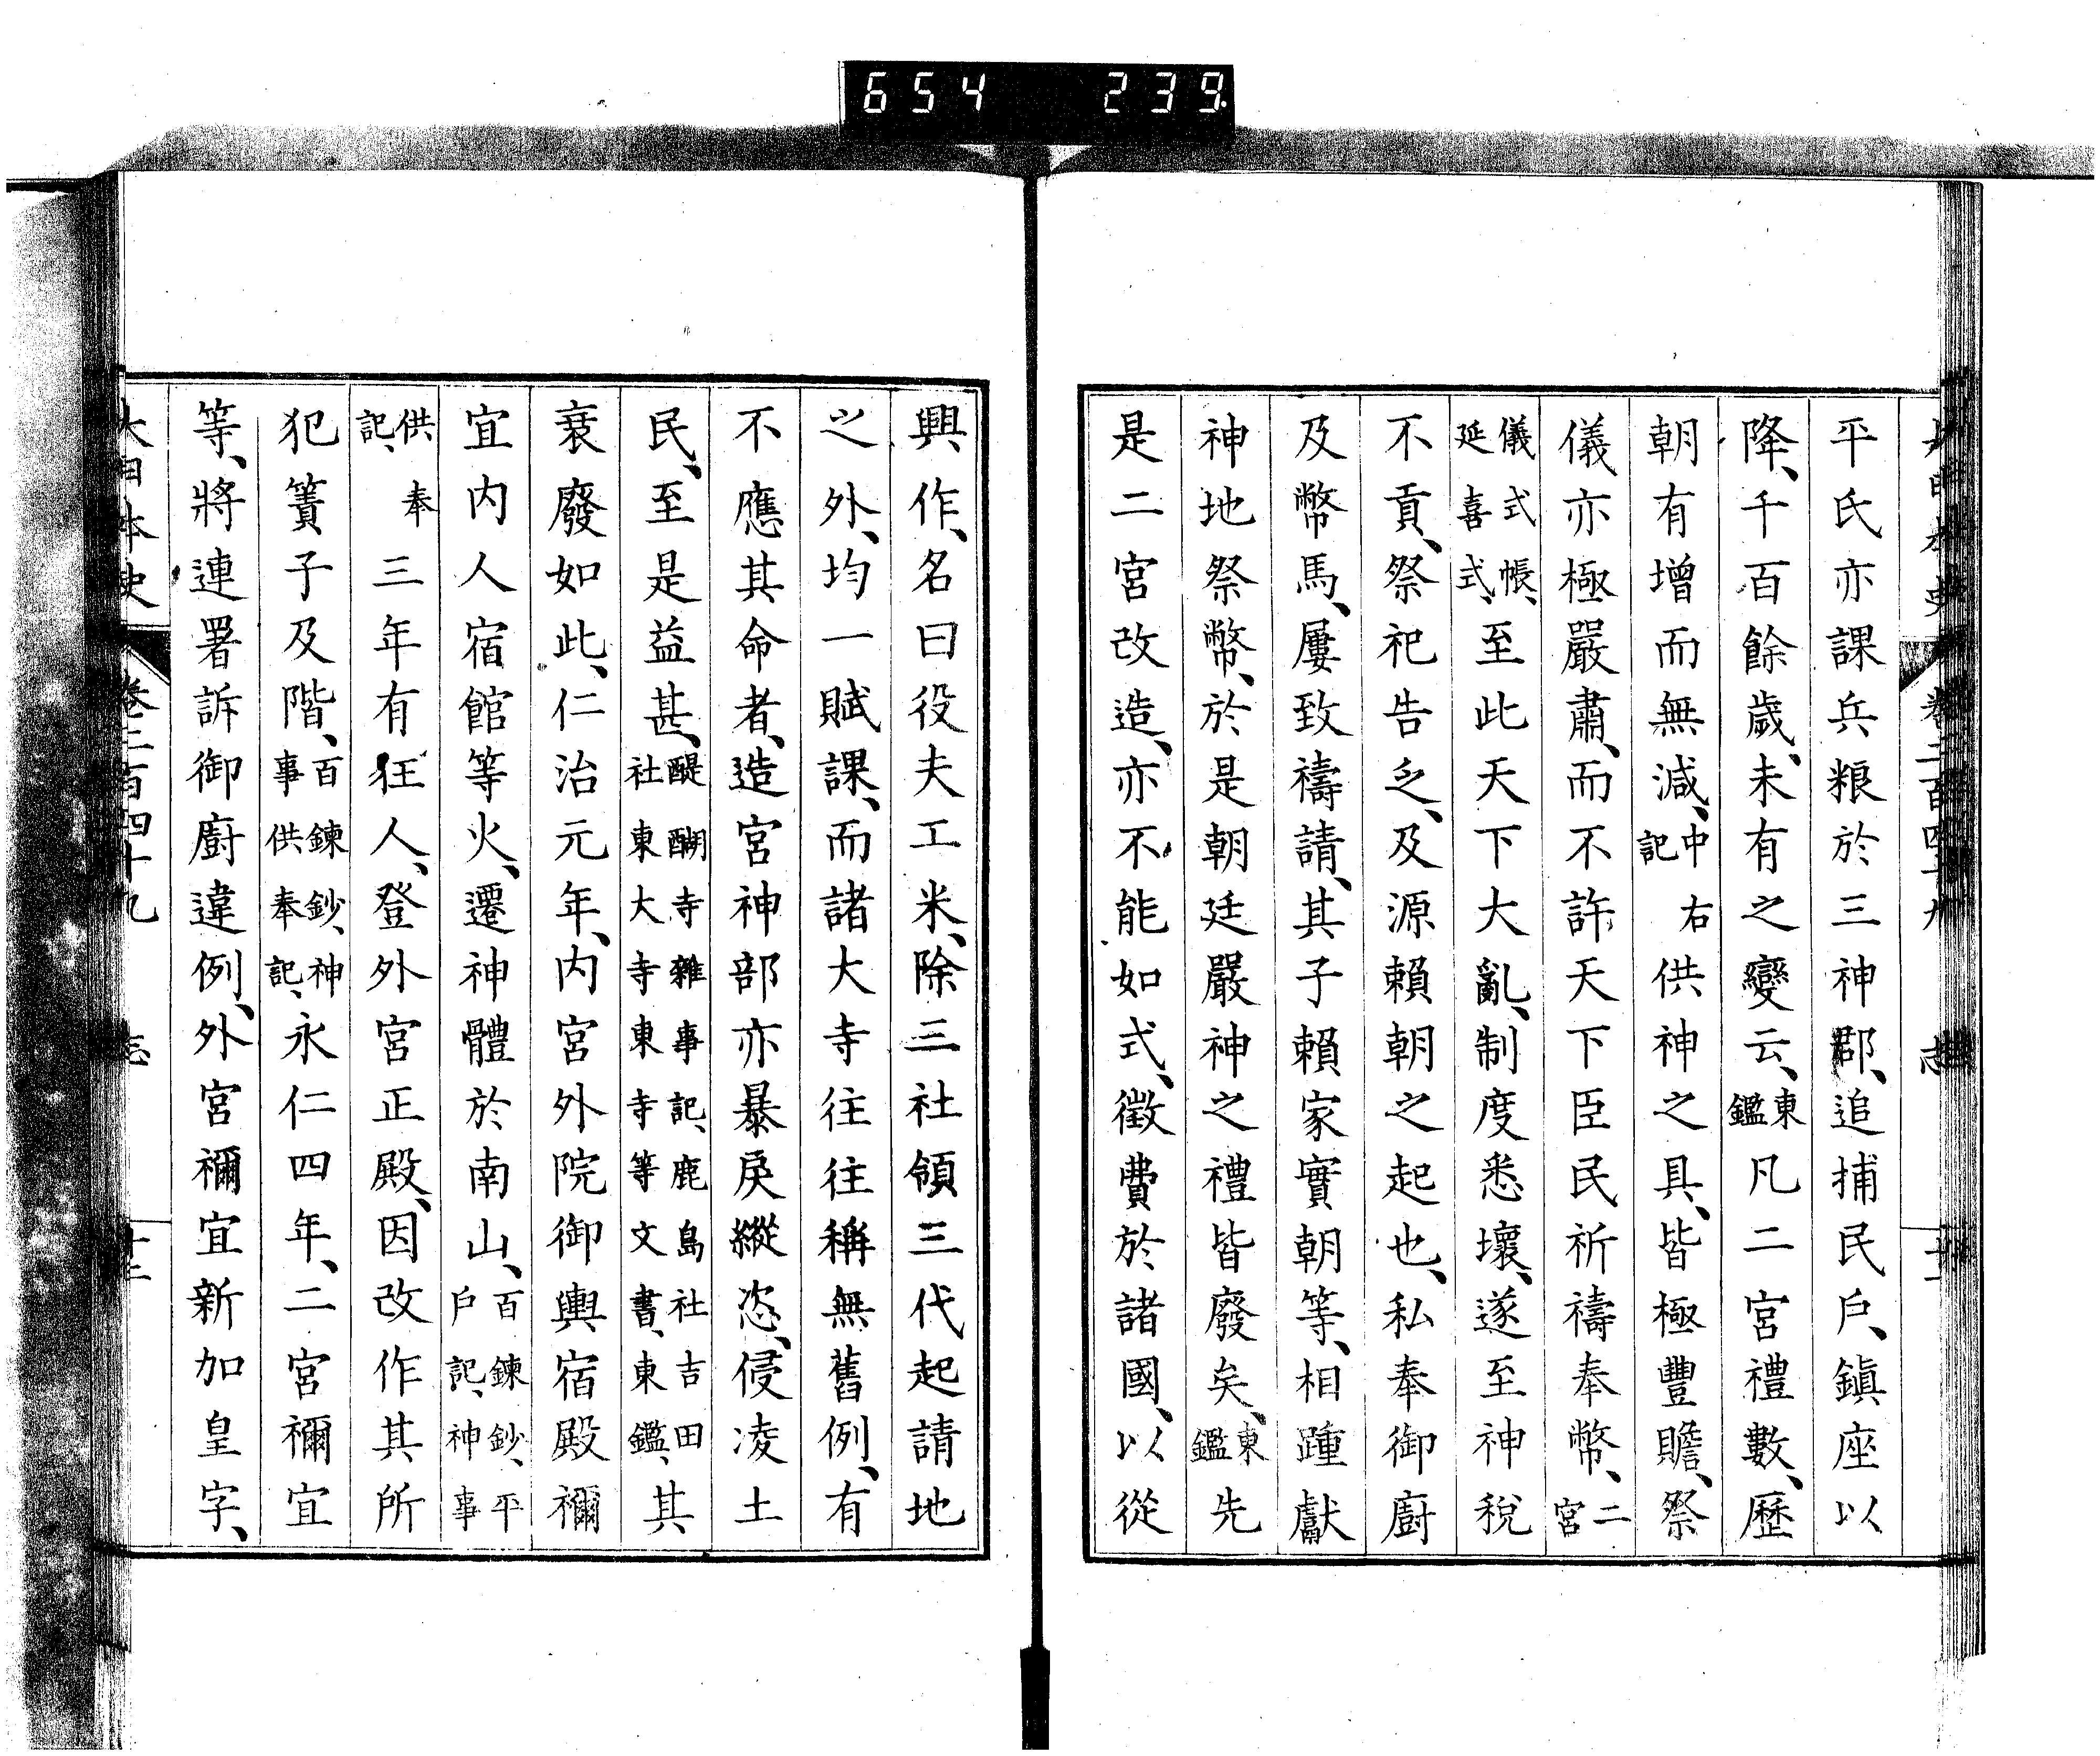 654 239
平氏亦課兵粮於三神郡、追捕民戶、鎮座以
降、千百餘歲、未有之變云、東鑑凡二宮禮數、歷
朝有增而無減、中右記供神之具、皆極豐贍、祭
儀亦極嚴肅、而不許天下臣民祈禱奉幣、二宮
儀式帳、延喜式、至此天下大亂、制度悉壞、遂至神稅
不貢、祭祀告乏、及源賴朝之起也、私奉御廚
及幣馬、屢致禱請、其子賴家實朝等、相踵獻
神地祭幣、於是朝廷嚴神之禮皆廢矣、東鑑先
是二宮改造、亦不能如式、徵費於諸國、以從
興作、名曰役夫工米、除三社領三代起請地
之外、均一賦課、而諸大寺往往稱無舊例、有
不應其命者、造宮神部亦暴戾縱恣、侵凌土
民、至是益甚、醍醐寺雜事記、鹿島社吉田社東大寺東寺等文書、東鑑、其
衰廢如此、仁治元年、內宮外院御輿宿殿禰
宜內人宿館等火、遷神體於南山、百鍊鈔、平戶記、神事
供奉記、三年有狂人、登外宮正殿、因改作其所
犯簀子及階、百鍊鈔、神事供奉記、永仁四年、二宮禰宜
等、將連署訴御廚違例、外宮禰宜新加皇字、
大日本史 卷二百四十九 志 十二